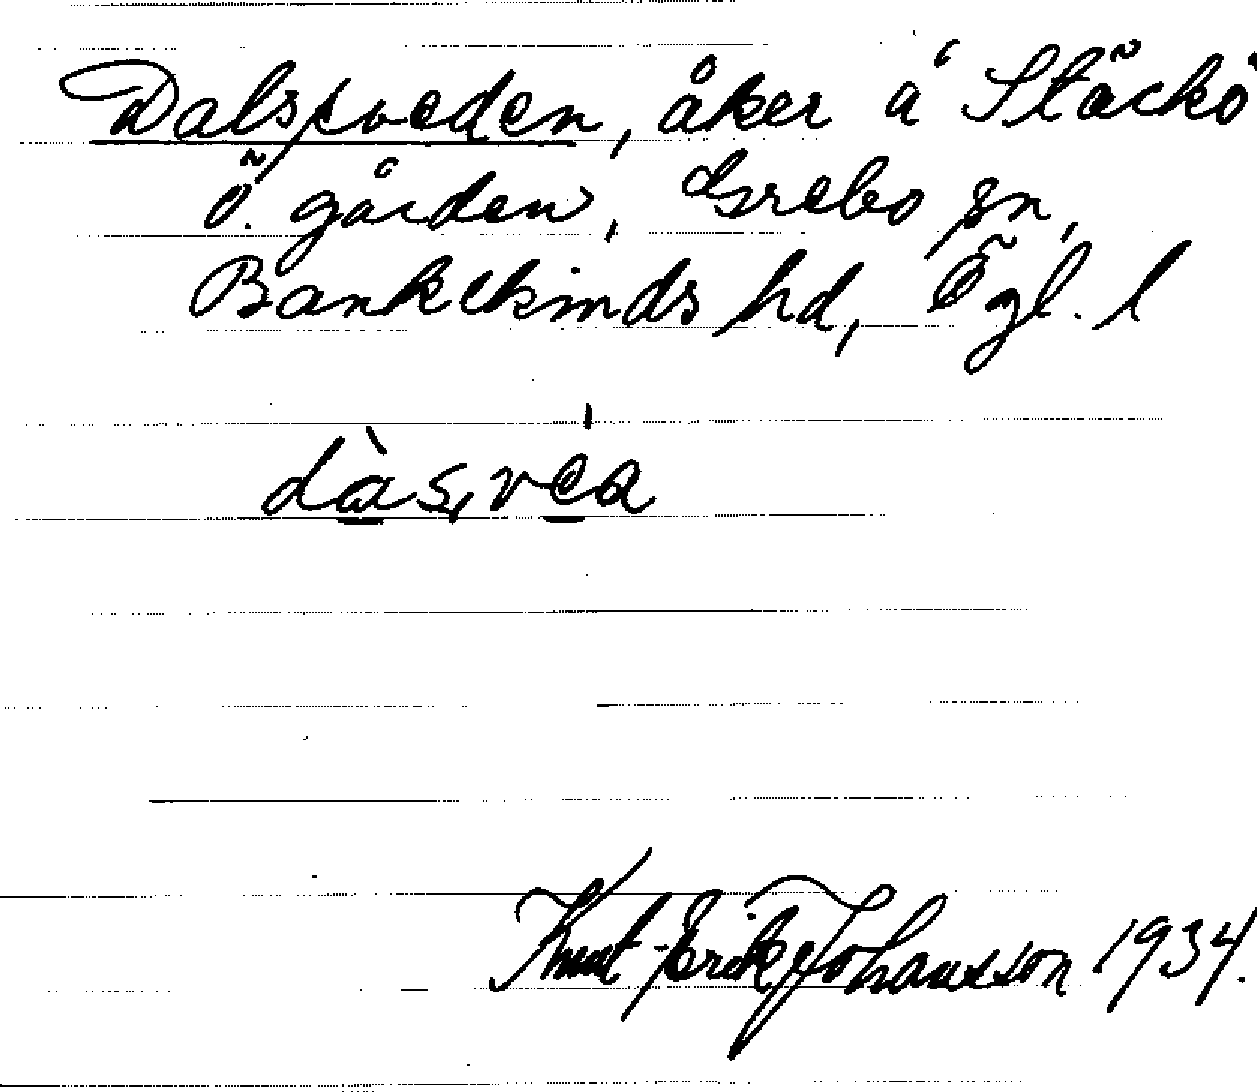 Dalssveden, åker å Stäckö
Ö. gården, Grebo sn,
Bankekinds hd, Ögl. l
dàsvea
Knut-Erik Johansson 1934.